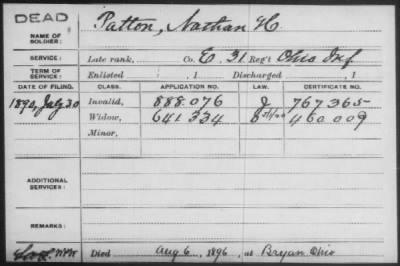 DEAD
NAME OF SOLDIER: Patton, Nathan H.
SERVICE: Late rank, Co. E, 31 Reg't Ohio Inf
TERM OF SERVICE: Enlisted , 1 Discharged , 1
DATE OF FILING. CLASS. APPLICATION NO. LAW. CERTIFICATE NO.
1890, July 30 Invalid, 888.076 J 767365
Widow, 641334 460009
Minor,
ADDITIONAL SERVICES:
REMARKS:
Died Aug 6, 1896, at Bryan Ohio